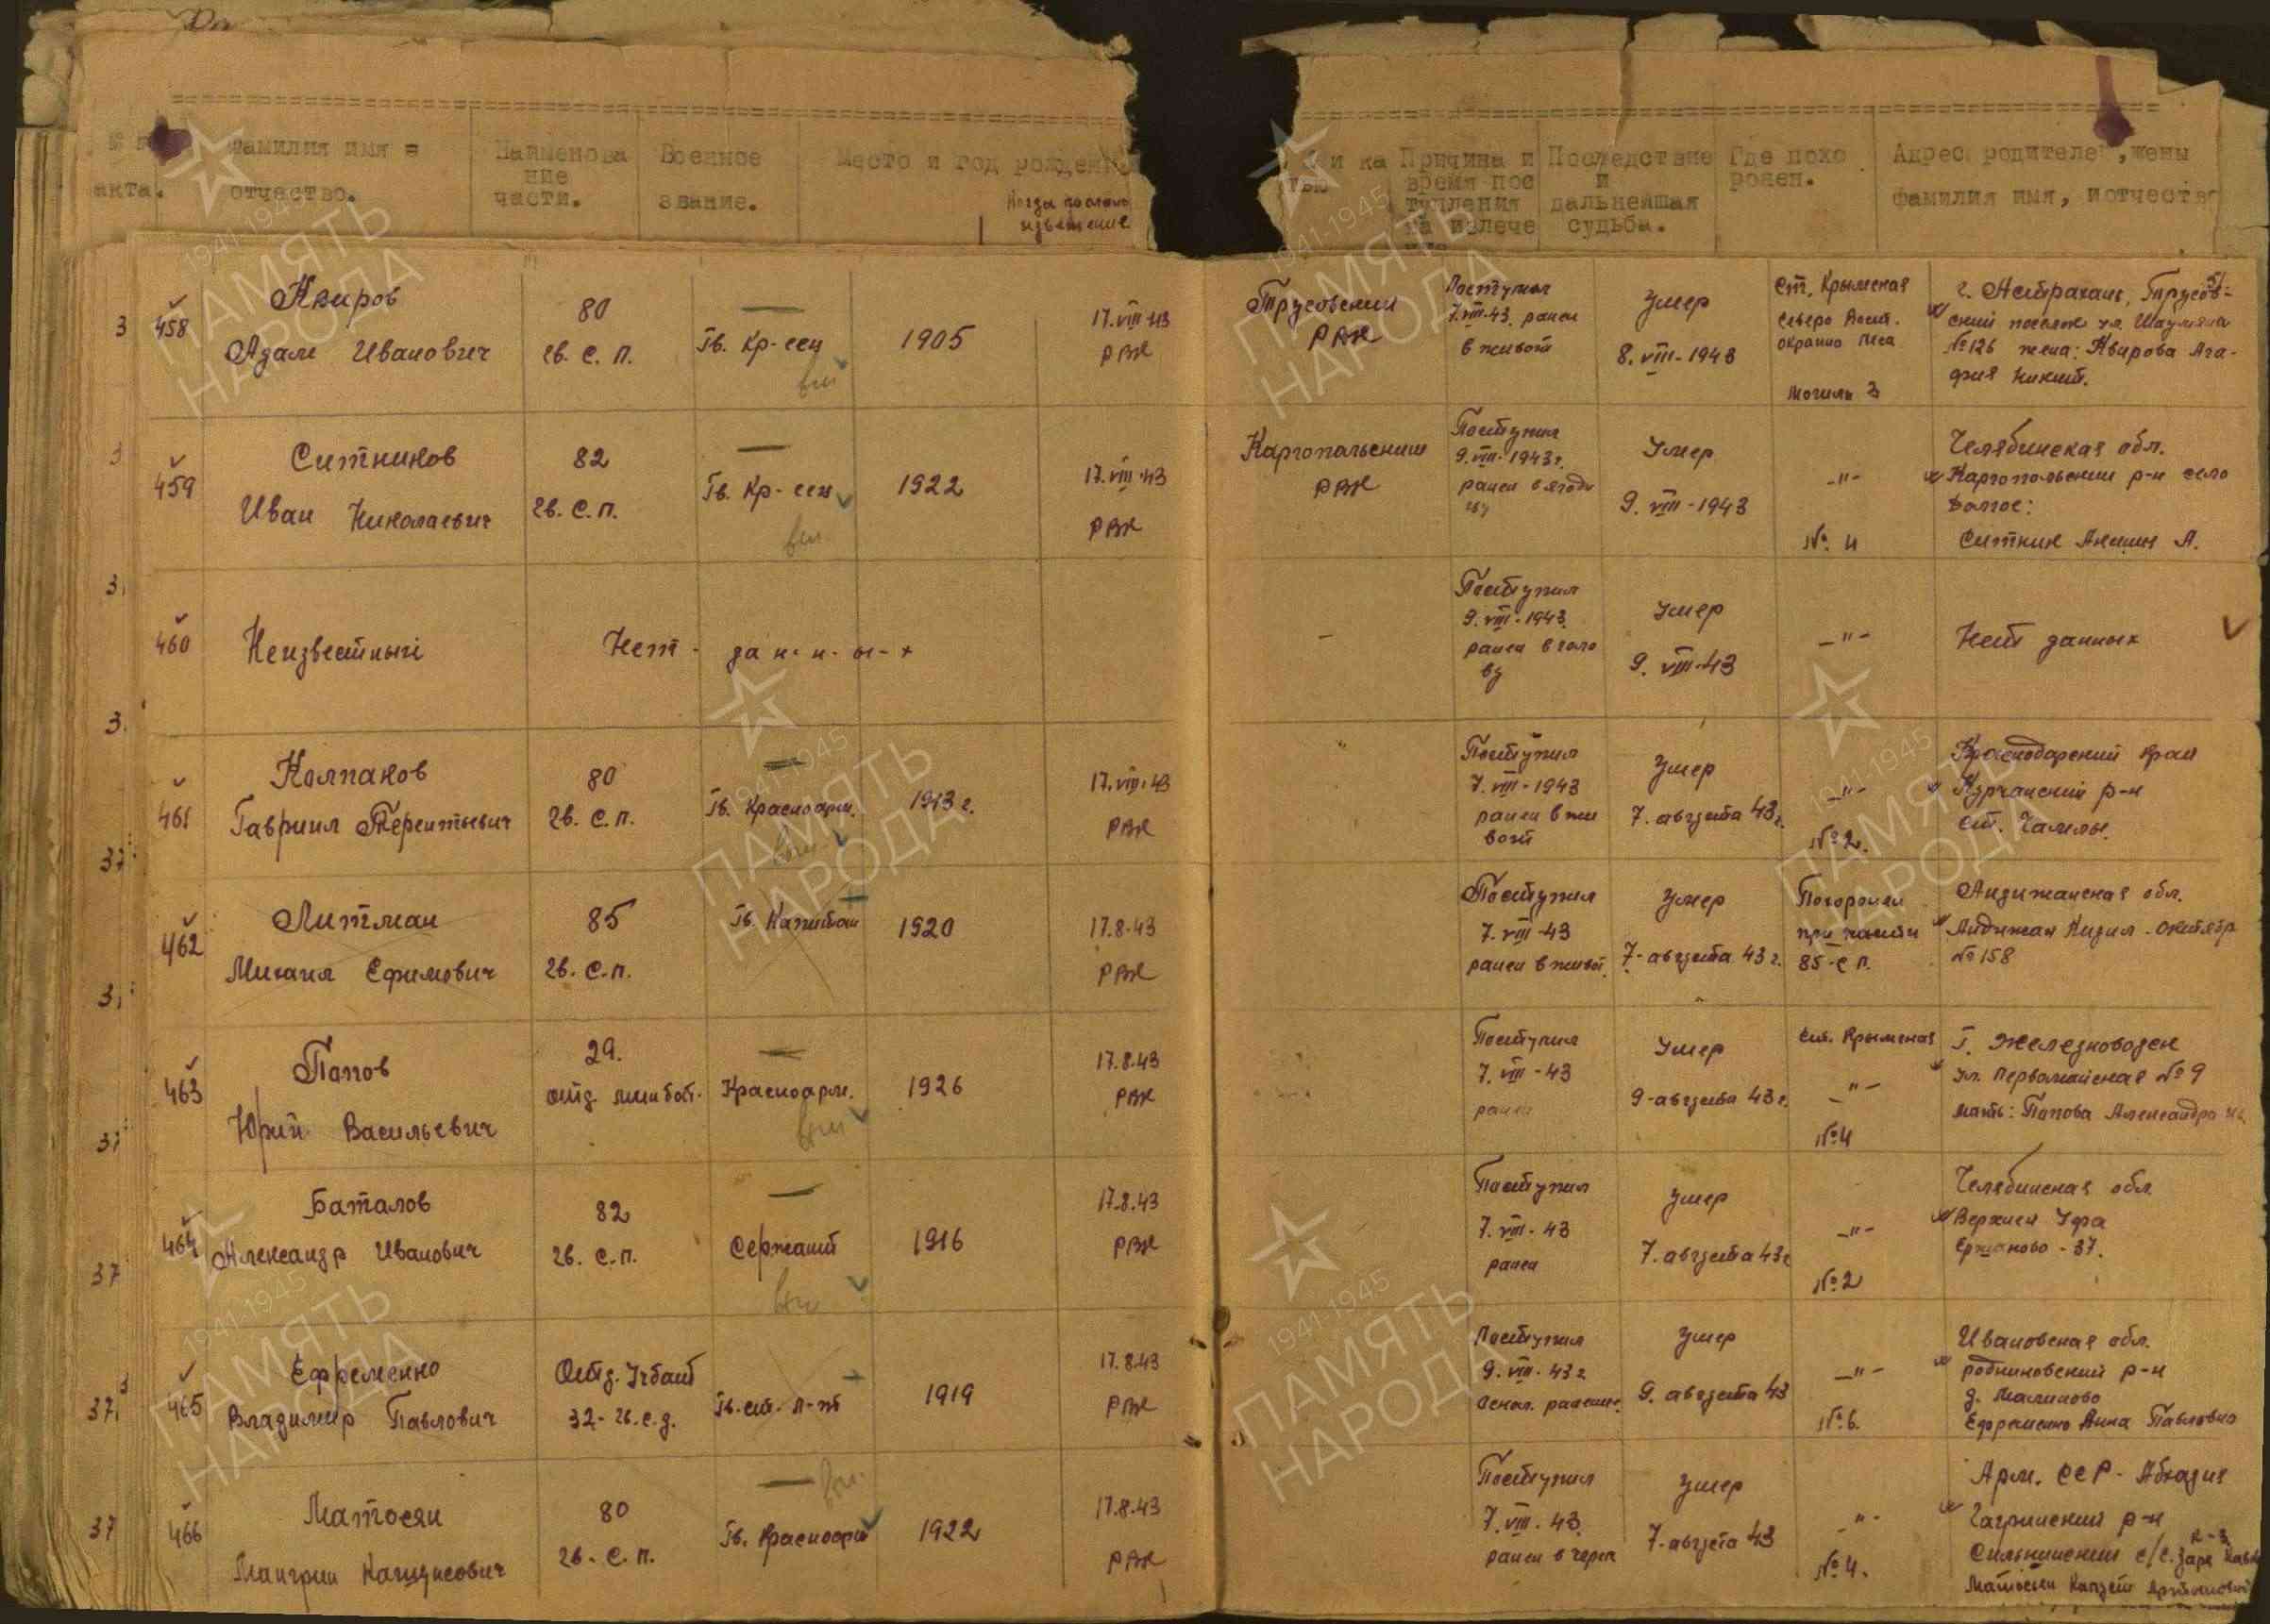 фамилия имя =
отчество.
Наименова
ние
части.
Военное
звание.
Место и год рожден
Когда послано
извещение
акта.
Причина и
время пос
тупления
на излече
Последствие
и
дальнейшая
судьба.
Где похо
ронен.
Адрес родителе ,жены
фамилия имя, иотчество
3
458
Квиров
Адам Иванович
80
гв. с. п.
Гв. Кр-еец
вы
1905
17.VIII-43
РВК
Трусовский
РВК
Поступил
7.VIII-43. ранен
в живот
Умер
8. VIII-1943
ст. Крымская
Северо Вост.
окраина леса
могила 3
г. Астрахань, Трусов-
ский поселок ул. Шаумяна
№126 жена: Квирова Ага-
фия Никит.
3
459
Ситников
Иван Николаевич
82
гв. с. п.
Гв. Кр-еец
вы
1922
17.VIII-43
РВК
Каргопальский
РВК
Поступил
9.VIII-1943г.
ранен в ягоди
цу
Умер
9. VIII-1943
-"-
№ 4
Челябинская обл.
Каргопольский р-н село
Долгое:
Ситник А.
3
460
Неизвестный
Нет - да н- н- ы- х
-
Поступил
9.VIII-1943.
ранен в голо
ву
Умер
9. VIII-43
-"-
Нет данных
3
461
Колпаков
Гавриил Терентьевич
80
гв. с. п.
Гв. Красноарм.
вы
1913 г.
17.VIII-43
РВК
Поступил
7. VIII-1943
ранен в жи
вот
Умер
7. августа 43г.
-"-
№2.
Краснодарский край
Курчанский р-н
ст.
37
462
Литман
Михаил Ефимович
85
гв. с. п.
Гв. Капитан
1920
17.8-43
РВК
Поступил
7. VIII-43
ранен в живот.
Умер
7-августа 43г.
Похоронен
при части
85-с п.
Андижанская обл.
Андижан Кизил-октябр
№158
3
463
Попов
Юрий Васильевич
29.
отд. минбат.
Красноарм.
вы
1926
17.8.43
РВК
Поступил
7. VIII-43
ранен
Умер
9-августа 43г.
ст. Крымская
-"-
№4
Г. Железноводск
ул. Первомайская №9
мать: Попова Александра Ив.
37
464
Баталов
Александр Иванович
82
гв. с. п.
Сержант
вы
1916
17.8.43
РВК
Поступил
7. VIII-43
ранен
Умер
7. августа 43г
-"-
№2
Челябинская обл
Верхний Уфа
Ержаново-37.
37
465
Ефременко
Владимир Павлович
Отд. Учбат
32-гв.с.д.
Гв. ст. л-нт
1919
17.8.43
РВК
Поступил
9. VIII-43г
Оскол. ранение.
Умер
9. августа 43
-"-
№6.
Ивановская обл.
родниковский р-н
д. Малиново
Ефременко Анна Павловна
37
466
Матосян
80
гв. с. п.
Гв. Красноарм
вы.
1922
17.8.43
РВК
Поступил
7. VIII-43.
ранен в череп
Умер
7-августа 43
-"-
№4.
Арм. ССР-Абхазия
Гагринский р-н
с/с. Заря
ПАМЯТЬ
НАРОДА
1941-1945
ПАМЯТЬ
НАРОДА
1941-1945
ПАМЯТЬ
НАРОДА
1941-1945
ПАМЯТЬ
НАРОДА
1941-1945
ПАМЯТЬ
НАРОДА
1941-1945
ПАМЯТЬ
НАРОДА
1941-1945